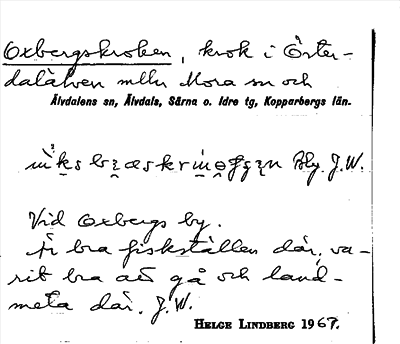 Oxbergskroken, krok i Öster-
dalälven mlln Mora sn och
Älvdalens sn, Älvdals, Särna o. Idre tg, Kopparbergs län.
Bly. J.W.
Vid Oxbergs by.
Är bra fiskställen där, va-
rit bra att gå och land-
meta där. J.W.
HELGE LINDBERG 1967.